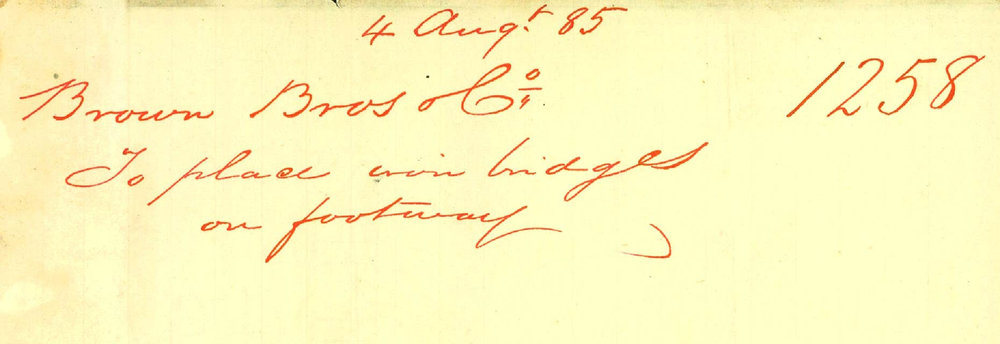 4 Augt. 85
Brown Bros & Co. 1258
To place iron bridges
on footway